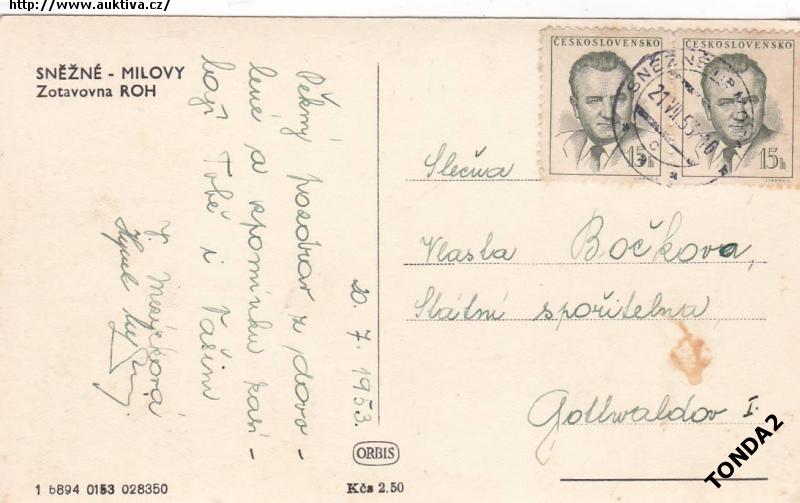 http://www.auktiva.cz/
SNĚŽNÉ - MILOVY
Zotavovna ROH
Pěkný pozdrav z dovo-
lené a vzpomínku zasí-
lají Tobě i Vašim
J. Macíčková
20. 7. 1953.
ČESKOSLOVENSKO
15h
ČESKOSLOVENSKO
15h
SNĚŽNÉ
21.VII.53-10
Slečna
Vlasta Bočkova,
Státní spořitelna
Gottwaldov I.
ORBIS
1 6894 0153 028350
Kčs 2.50
TONDA2